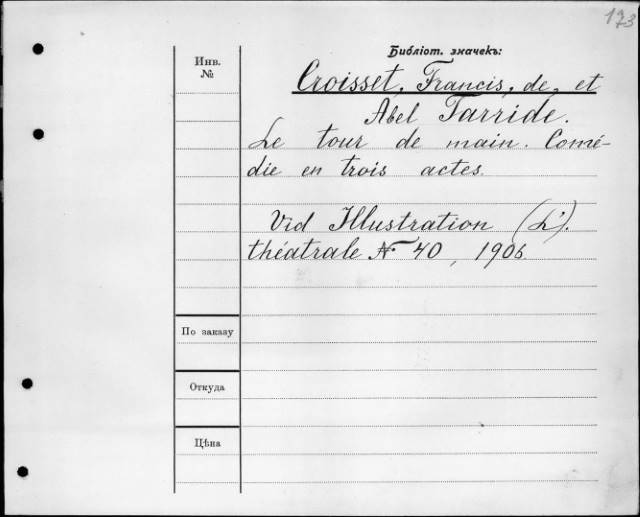 173
Библіот. значекъ:
Инв. №
Croisset, Francis, de, et
Abel Tarride.
Le tour de main. Comé-
die en trois actes.
Vid Illustration (L').
théatrale № 40, 1906.
По заказу
Откуда
Цѣна